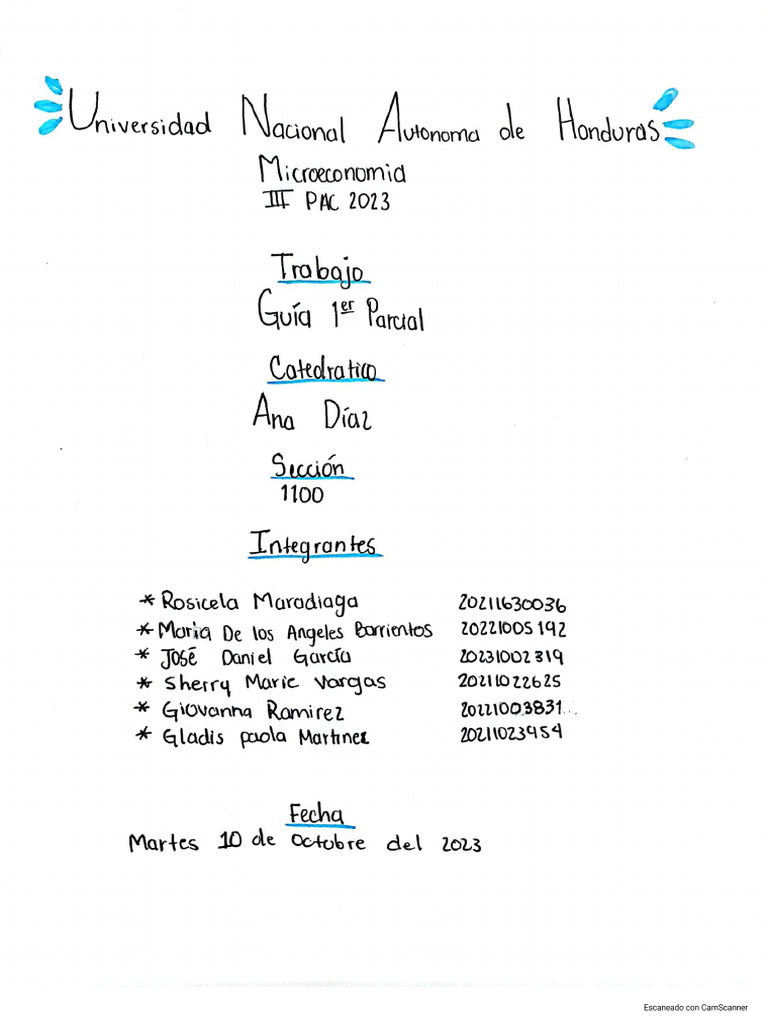 Universidad Nacional Autonoma de Honduras
Microeconomia
III PAC 2023
Trabajo
Guía 1er Parcial
Catedratico
Ana Díaz
Sección
1100
Integrantes
* Rosicela Maradiaga 20211630036
* Maria De los Angeles Barrientos 20221005192
* José Daniel García 20231002319
* Sherry Marie Vargas 20211022625
* Giovanna Ramirez 20221003831
* Gladis paola Martinez 20211023954
Fecha
Martes 10 de octubre del 2023
Escaneado con CamScanner